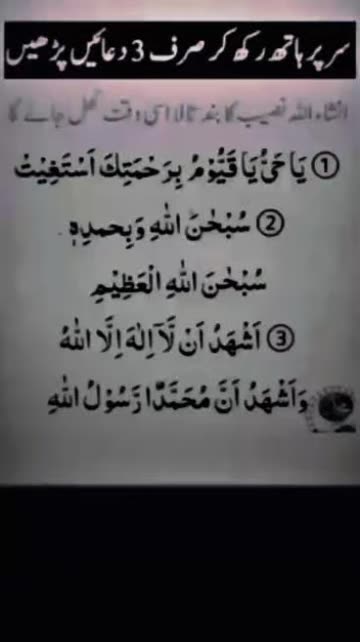 سر پر ہاتھ رکھ کر صرف 3 دعائیں پڑھیں
انشاء اللہ نصیب کا بند تالا اسی وقت کھل جائے گا
① يَا حَيُّ يَا قَيُّوْمُ بِرَحْمَتِكَ اَسْتَغِيْثُ
② سُبْحٰنَ اللهِ وَبِحَمْدِهٖ
سُبْحٰنَ اللهِ الْعَظِيْمِ
③ اَشْهَدُ اَنْ لَّآ اِلٰهَ اِلَّا اللهُ
وَاَشْهَدُ اَنَّ مُحَمَّدًا رَّسُوْلُ اللهِ